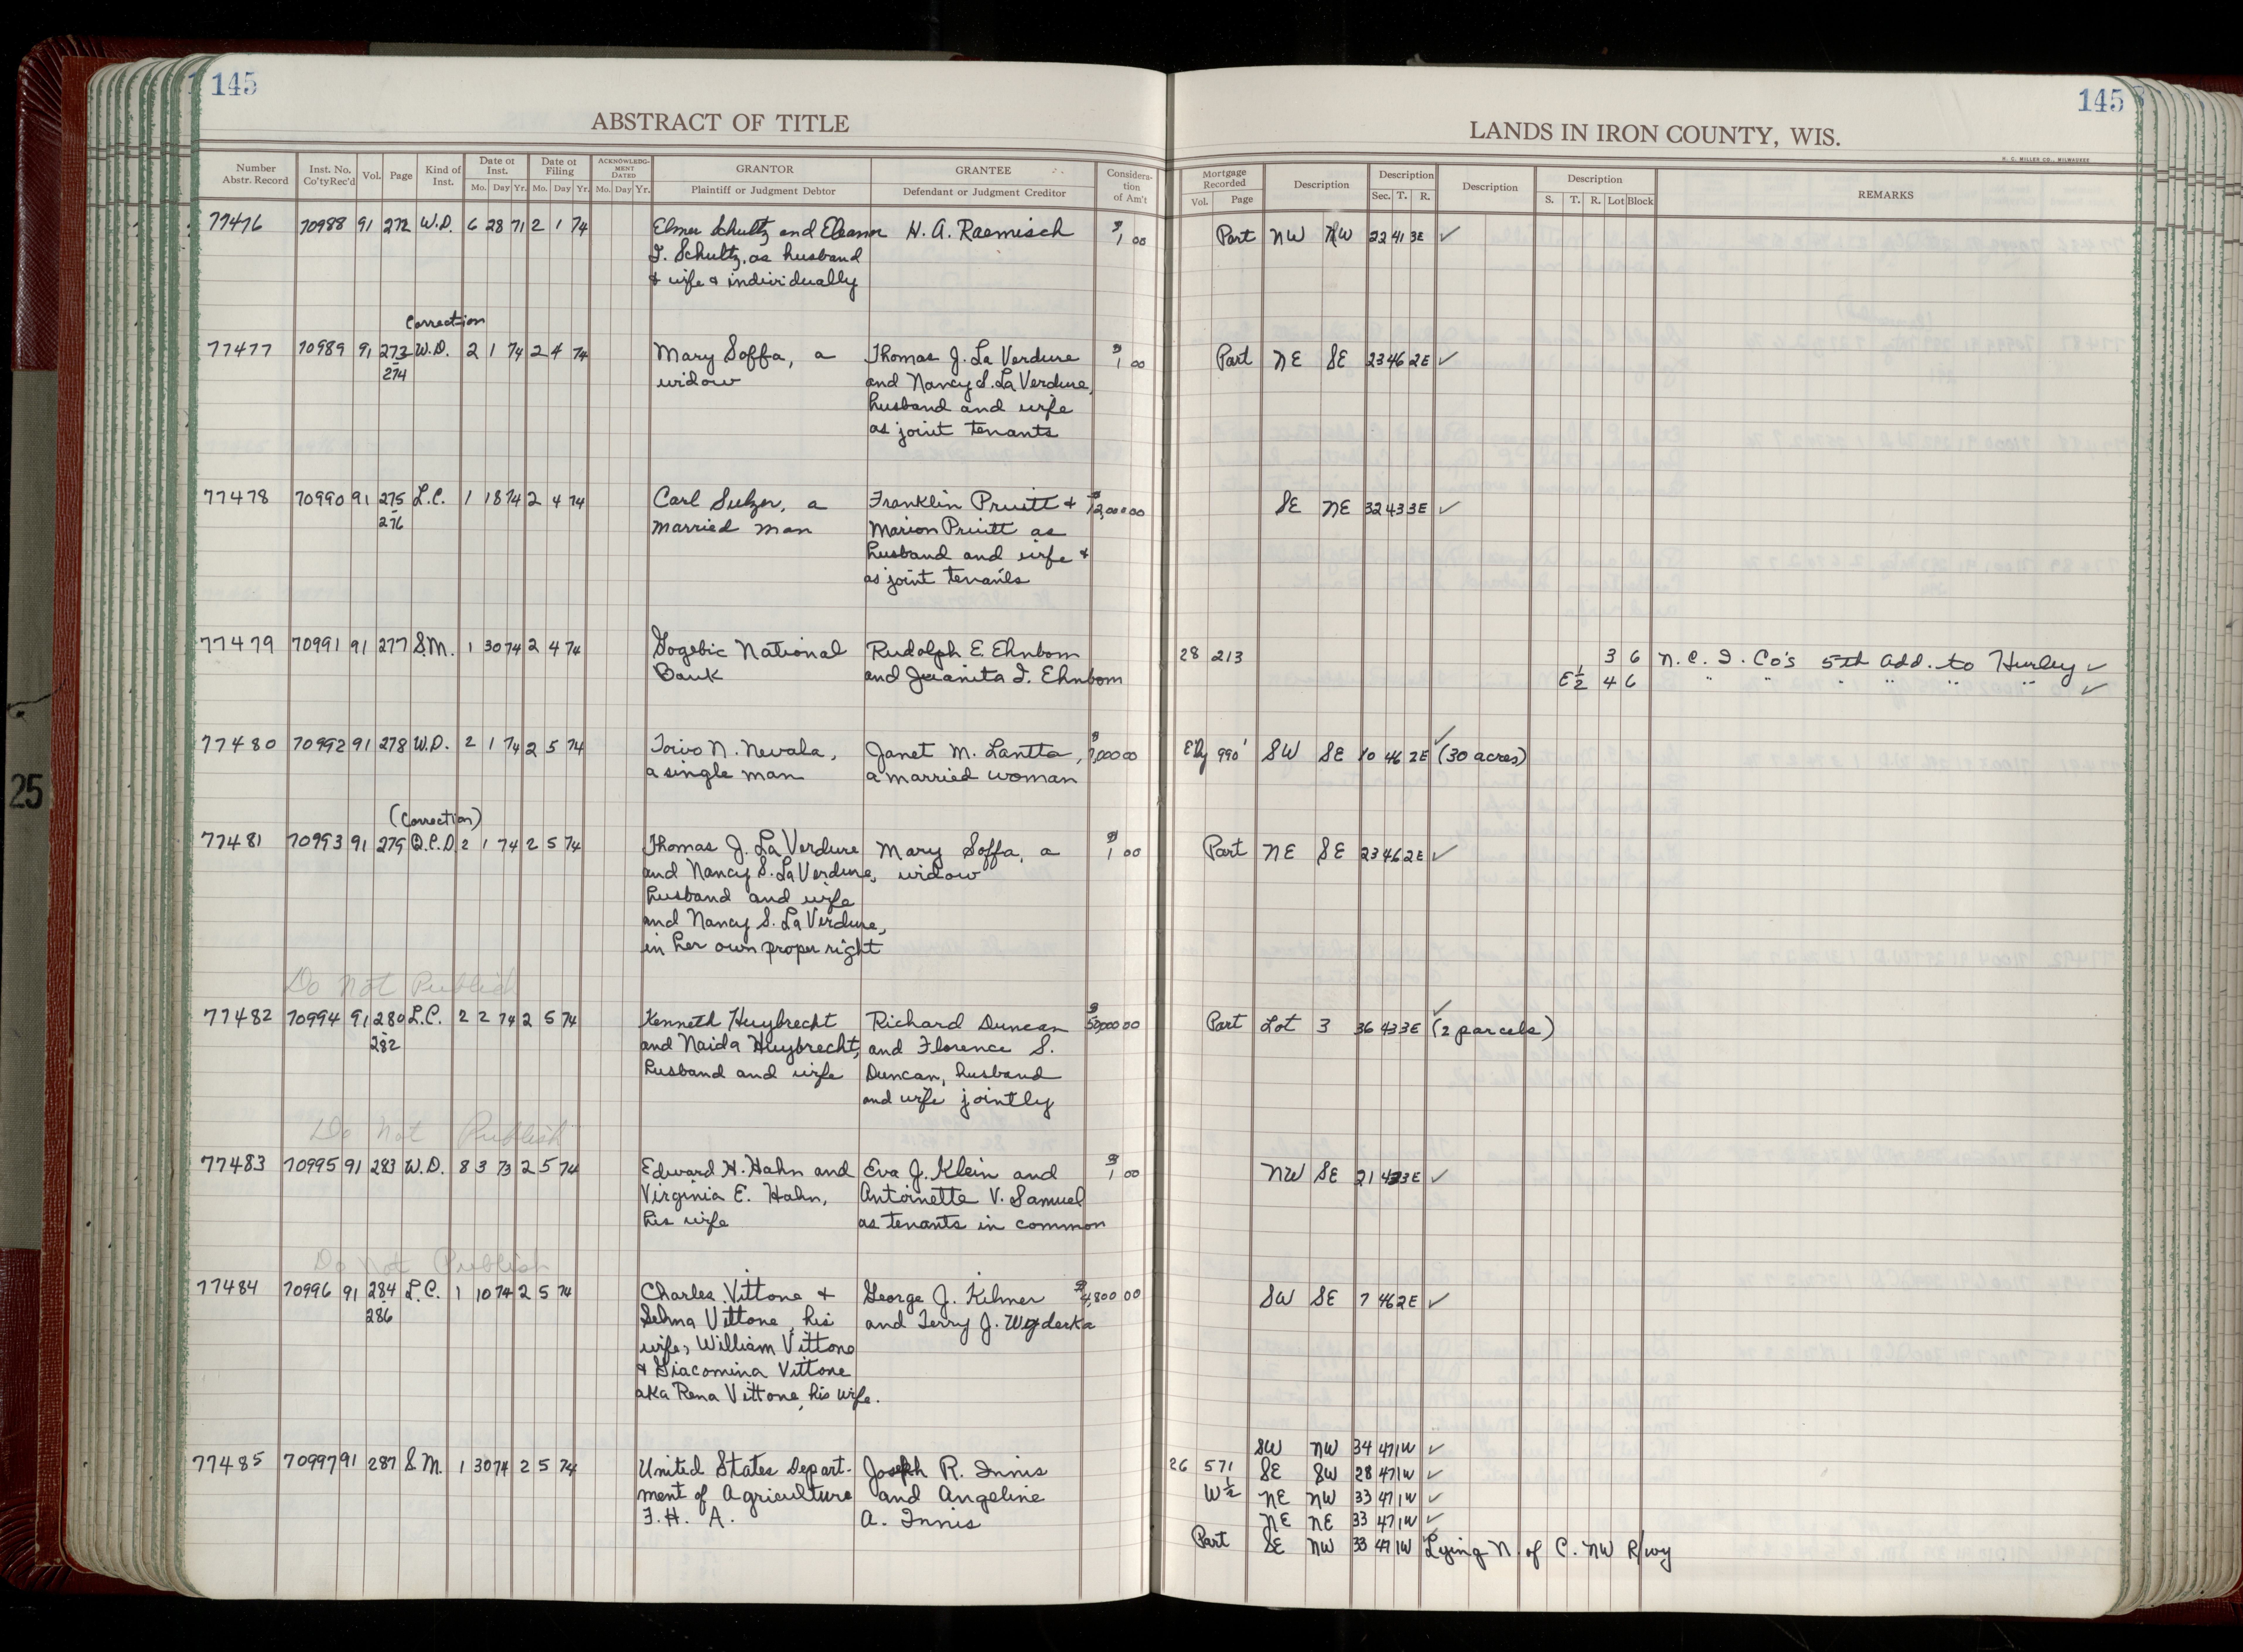 145
ABSTRACT OF TITLE
Number Abstr. Record Inst. No. Co'ty Rec'd Vol. Page Kind of Inst. Date of Inst. Mo. Day Yr. Date of Filing Mo. Day Yr. ACKNOWLEDGMENT DATED Mo. Day Yr. GRANTOR Plaintiff or Judgment Debtor GRANTEE Defendant or Judgment Creditor Consideration of Am't
145
LANDS IN IRON COUNTY, WIS.
H. C. MILLER CO., MILWAUKEE
Mortgage Recorded Vol. Page Description Description Sec. T. R. Description Description S. T. R. Lot Block REMARKS
77476 70988 91 272 W.D. 6 28 71 2 1 74 Elmer Schultz and Eleanor H. A. Raemisch $1 00 Part NW NW 22 41 3E ✓
I. Schultz, as husband
& wife & individually
Correction
77477 70989 91 273 W.D. 2 1 74 2 4 74 Mary Soffa, a Thomas J. La Verdure $1 00 Part NE SE 23 46 2E ✓
- 274 widow and Nancy S. La Verdure,
husband and wife
as joint tenants
77478 70990 91 275 L.C. 1 18 74 2 4 74 Carl Sulzer, a Franklin Pruitt & $12,000 00 SE NE 32 43 3E ✓
- 276 married man Marion Pruitt as
husband and wife &
as joint tenants
77479 70991 91 277 S.M. 1 30 74 2 4 74 Gogebic National Rudolph E. Ehnbom 28 213 3 6 N. C. I. Co's 5th Add. to Hurley ✓
Bank and Juanita I. Ehnbom E½ 4 6 " " " " " " ✓
77480 70992 91 278 W.D. 2 1 74 2 5 74 Toivo N. Nevala, Janet M. Lantta, $7,000 00 Ely 990' SW SE 10 46 2E ✓ (30 acres)
a single man a married woman
(Correction)
77481 70993 91 279 Q.C.D 2 1 74 2 5 74 Thomas J. La Verdure Mary Soffa, a $1 00 Part NE SE 23 46 2E ✓
and Nancy S. La Verdure, widow
husband and wife
and Nancy S. La Verdure,
in her own proper right
Do Not Publish
77482 70994 91 280 L.C. 2 2 74 2 5 74 Kenneth Huybrecht Richard Duncan $50,000 00 Part Lot 3 36 43 3E ✓ (2 parcels)
- 282 and Naida Huybrecht, and Florence S.
husband and wife Duncan, husband
and wife jointly
Do Not Publish
77483 70995 91 283 W.D. 8 3 73 2 5 74 Edward H. Hahn and Eva J. Klein and $1 00 NW SE 21 43 3E ✓
Virginia E. Hahn, Antoinette V. Samuel
his wife as tenants in common
Do Not Publish
77484 70996 91 284 L.C. 1 10 74 2 5 74 Charles Vittone & George J. Kilmer $4,800 00 SW SE 7 46 2E ✓
- 286 Selma Vittone, his and Terry J. Wyderka
wife, William Vittone
& Giacomina Vittone
aka Rena Vittone, his wife.
SW NW 34 47 1W ✓
77485 70997 91 287 S.M. 1 30 74 2 5 74 United States Depart- Joseph R. Innis 26 571 SE SW 28 47 1W ✓
ment of Agriculture and Angeline W½ NE NW 33 47 1W ✓
F. H. A. A. Innis NE NE 33 47 1W ✓
Part SE NW 33 47 1W ✓ Lying N. of C. NW R/wy
25